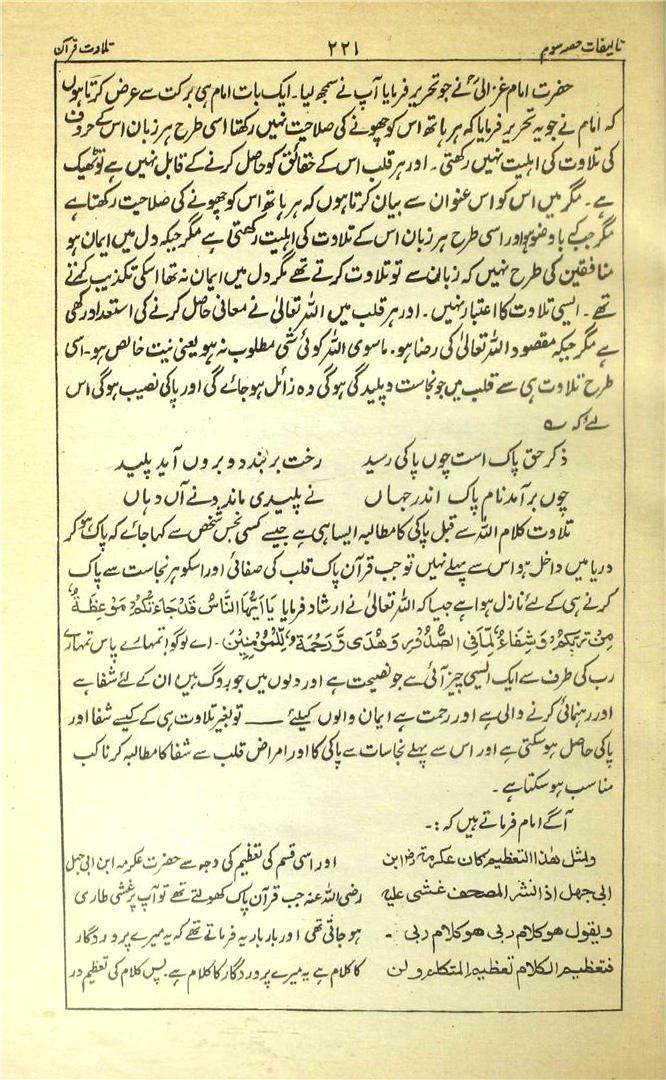 تالیفات حصہ سوم ۲۲۱ تلاوت قرآن
حضرت امام غزالیؒ نے جو تحریر فرمایا آپ نے سمجھ لیا۔ ایک بات امام ہی برکت سے عرض کرتا ہوں
کہ امام نے جو یہ تحریر فرمایا کہ ہر ہاتھ اس کو چھونے کی صلاحیت نہیں رکھتا اسی طرح ہر زبان اس کے حروف
کی تلاوت کی اہلیت نہیں رکھتی۔ اور ہر قلب اس کے حقائق کو حاصل کرنے کے قابل نہیں ہے تو ٹھیک
ہے۔ مگر میں اس کو اس عنوان سے بیان کرتا ہوں کہ ہر ہاتھ اس کو چھونے کی صلاحیت رکھتا ہے
مگر جب کے با وضو ہو اور اسی طرح ہر زبان اس کے تلاوت کی اہلیت رکھتی ہے مگر جبکہ دل میں ایمان ہو
منافقین کی طرح نہیں کہ زبان سے تو تلاوت کرتے تھے مگر دل میں ایمان نہ تھا اسکی تکذیب کرتے
تھے۔ ایسی تلاوت کا اعتبار نہیں۔ اور ہر قلب میں اللہ تعالیٰ نے معانی حاصل کرنے کی استعداد رکھی
ہے مگر جبکہ مقصود اللہ تعالیٰ کی رضا ہو۔ ماسوی اللہ کوئی شئی مطلوب نہ ہو یعنی نیت خالص ہو۔ اسی
طرح تلاوت ہی سے قلب میں جو نجاست و پلیدگی ہوگی وہ زائل ہو جائے گی اور پاکی نصیب ہوگی اس
لئے کہ ؎
ذکر حق پاک است چوں پاکی رسید رخت بر بندد و بروں آید پلید
چوں بر آمد نام پاک اندر جہاں نے پلیدی ماند و نے آں دہاں
تلاوت کلام اللہ سے قبل پاکی کا مطالبہ ایسا ہی ہے جیسے کسی نجس شخص سے کہا جائے کہ پاک ہو کر
دریا میں داخل ہو اس سے پہلے نہیں تو جب قرآن پاک قلب کی صفائی اور اسکو ہر نجاست سے پاک
کرنے ہی کے لئے نازل ہوا ہے جیسا کہ اللہ تعالیٰ نے ارشاد فرمایا یَا اَیُّہَا النَّاسُ قَدْ جَاءَتْکُمْ مَوْعِظَۃٌ
مِنْ رَبِّکُمْ وَشِفَاءٌ لِّمَا فِی الصُّدُوْرِ وَھُدًی وَّرَحْمَۃٌ لِّلْمُؤْمِنِیْنَ۔ اے لوگو! تمہارے پاس تمہارے
رب کی طرف سے ایک ایسی چیز آئی ہے جو نصیحت ہے اور دلوں میں جو روگ ہیں ان کے لئے شفا ہے
اور رہنمائی کرنے والی ہے اور رحمت ہے ایمان والوں کیلئے ـــــ تو بغیر تلاوت ہی کے کیسے شفا اور
پاکی حاصل ہو سکتی ہے اور اس سے پہلے نجاسات سے پاکی کا اور امراض قلب سے شفا کا مطالبہ کرنا کب
مناسب ہو سکتا ہے۔
آگے امام فرماتے ہیں کہ :۔
ولمثل ھذا التعظیم کان عکرمۃ رضؓ ابن اور اسی قسم کی تعظیم کی وجہ سے حضرت عکرمہ ابن ابی جہل
ابی جھل اذا نشر المصحف غشی علیہ رضی اللہ عنہ جب قرآن پاک کھولتے تھے تو آپ پر غشی طاری
ویقول ھو کلام ربی ھو کلام ربی ۔ ہو جاتی تھی اور بار بار یہ فرماتے تھے کہ یہ میرے پروردگار
فتعظیم الکلام تعظیم المتکلم ولن کا کلام ہے یہ میرے پروردگار کا کلام ہے۔ پس کلام کی تعظیم در